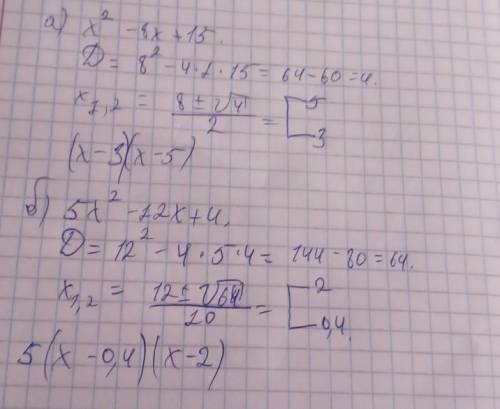 а) x² - 8x + 15.
D = 8² - 4 · 1 · 15 = 64 - 60 = 4.
x₁,₂ = (8 ± √4)/2 = [5 3
(x - 3)(x - 5)
б) 5x² - 12x + 4.
D = 12² - 4 · 5 · 4 = 144 - 80 = 64.
x₁,₂ = (12 ± √64)/10 = [2 0,4.
5(x - 0,4)(x - 2)